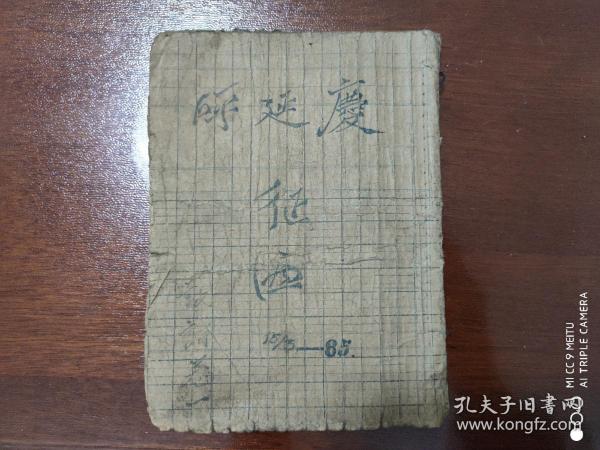 呼延慶
征
西
15/3—85.
MI CC9 MEITU
AI TRIPLE CAMERA
孔夫子旧書网
www.kongfz.com